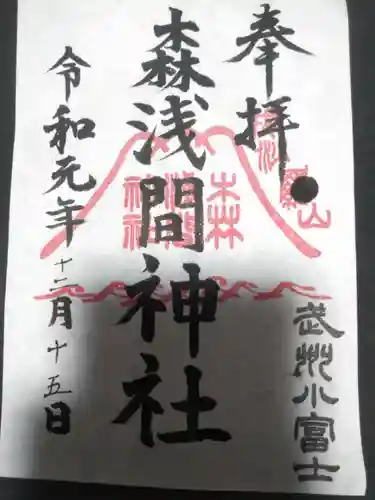 奉拝
武州小富士
森浅間神社
令和元年十二月十五日